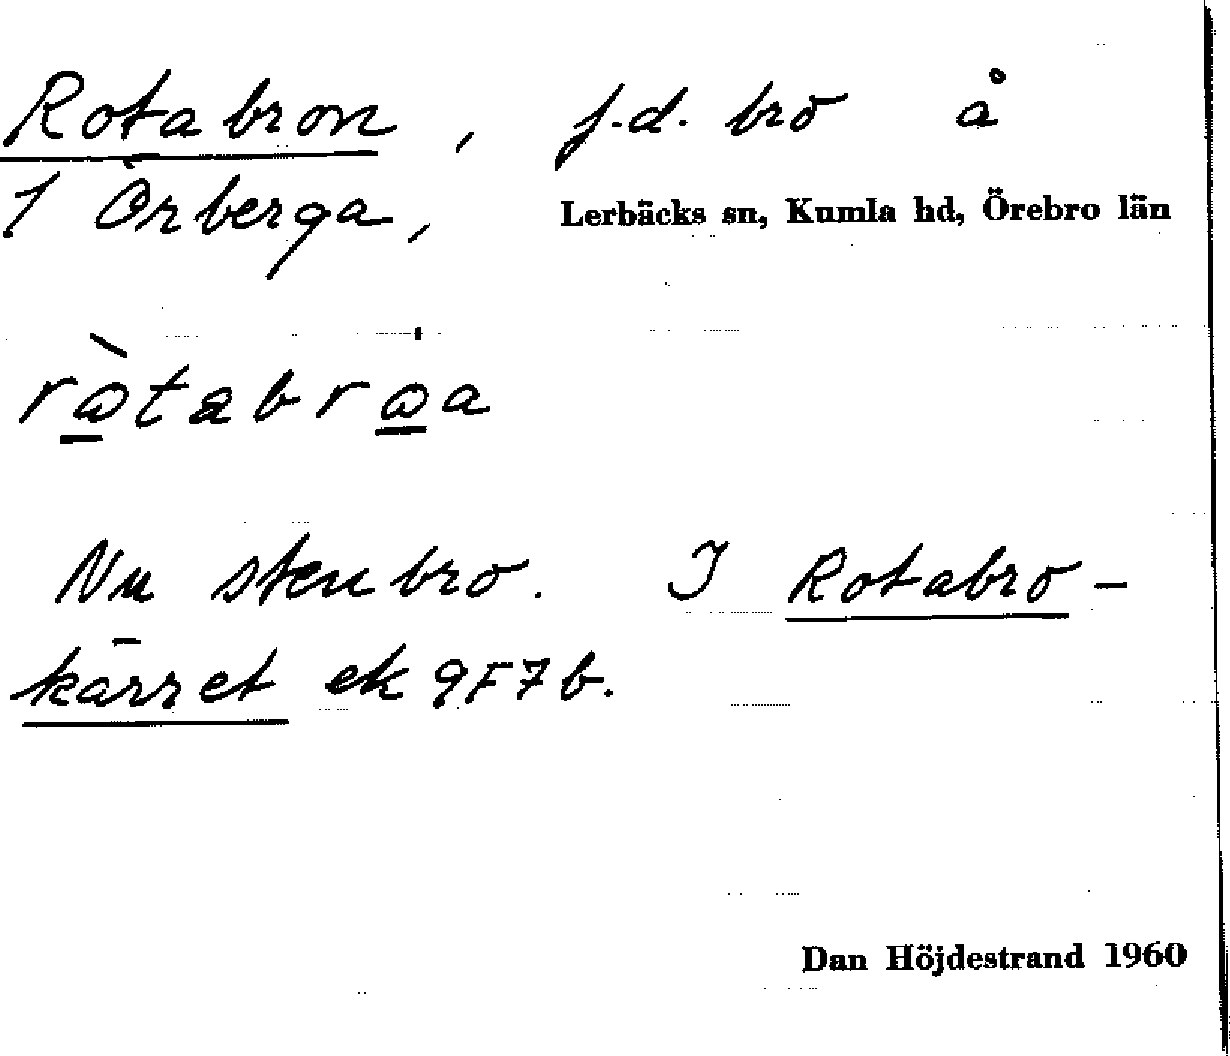 Rotabron, f.d. bro å
1 Örberga,
Lerbäcks sn, Kumla hd, Örebro län
Nu stenbro. I Rotabro-
kärret ek 9F7b.
Dan Höjdestrand 1960